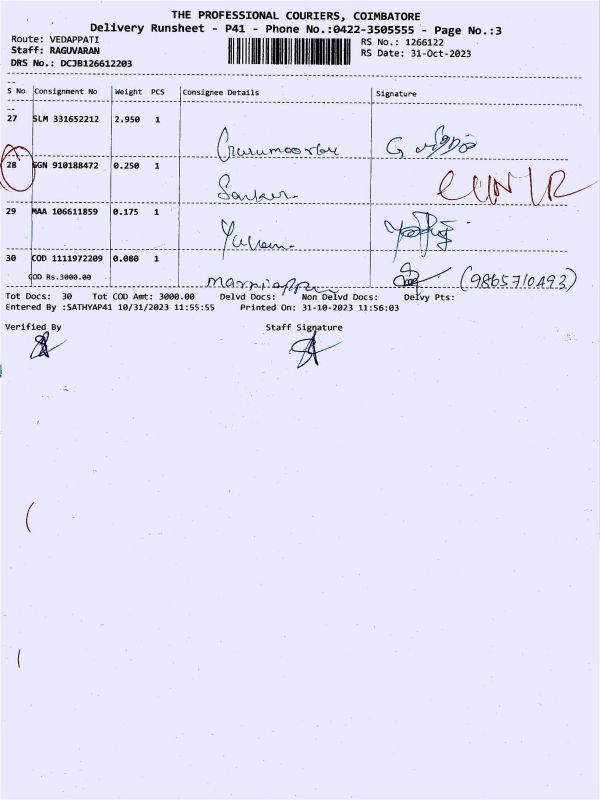 THE PROFESSIONAL COURIERS, COIMBATORE
Delivery Runsheet - P41 - Phone No.:0422-3505555 - Page No.:3
Route: VEDAPPATI
RS No.: 1266122
Staff: RAGUVARAN
RS Date: 31-Oct-2023
DRS No.: DCJB126612203
S No Consignment No Weight PCS Consignee Details Signature
27 SLM 331652212 2.950 1
Gurumoorthy
28 GGN 910188472 0.250 1
Sankar
29 MAA 106611859 0.175 1
30 COD 1111972209 0.080 1
COD Rs.3000.00
(9865710493)
Tot Docs: 30 Tot COD Amt: 3000.00 Delvd Docs: Non Delvd Docs: Delvy Pts:
Entered By :SATHYAP41 10/31/2023 11:55:55 Printed On: 31-10-2023 11:56:03
Verified By Staff Signature